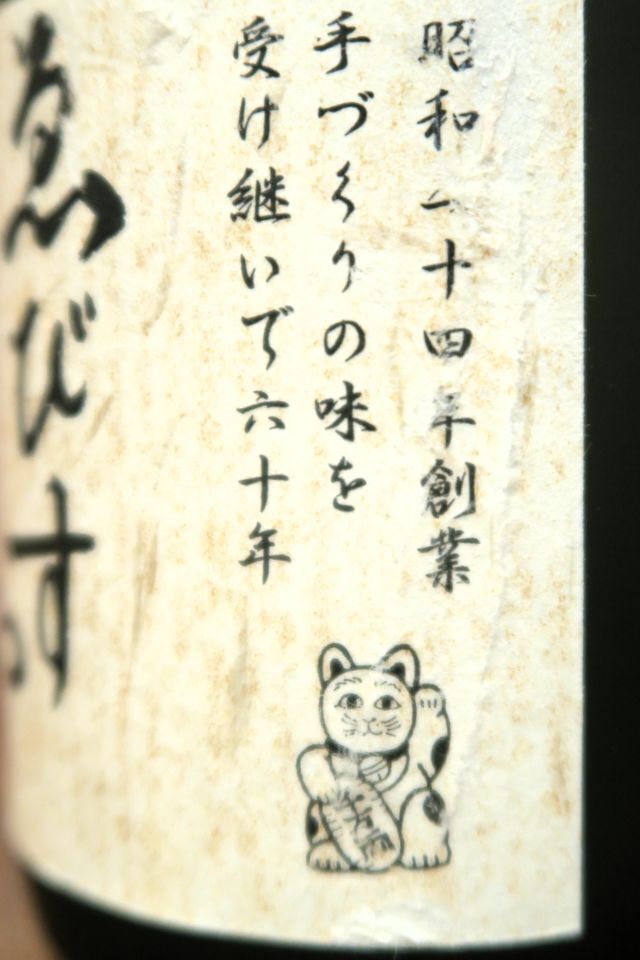 昭和二十四年創業
手づくりの味を
受け継いで六十年
ゑびす